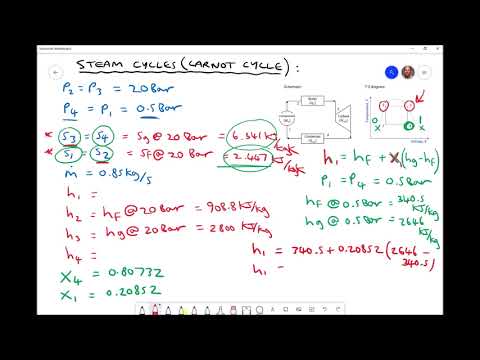 STEAM CYCLES (CARNOT CYCLE) :
P2 = P3 = 20 Bar
P4 = P1 = 0.5 Bar
* S3 = S4 = Sg @ 20 Bar = 6.341 KJ/kgK
* S1 = S2 = Sf @ 20 Bar = 2.447 KJ/kgK
m = 0.85 kg/s
h1 =
h2 = hf @ 20 Bar = 908.8 KJ/kg
h3 = hg @ 20 Bar = 2800 KJ/kg
h4 =
X4 = 0.80732
X1 = 0.20852
Schematic
T-S diagram
Boiler
Condenser
h1 = hf + X1(hg-hf)
P1 = P4 = 0.5 Bar
hf @ 0.5 Bar = 340.5 KJ/kg
hg @ 0.5 Bar = 2646 KJ/kg
h1 = 340.5 + 0.20852 (2646 - 340.5)
h1 =